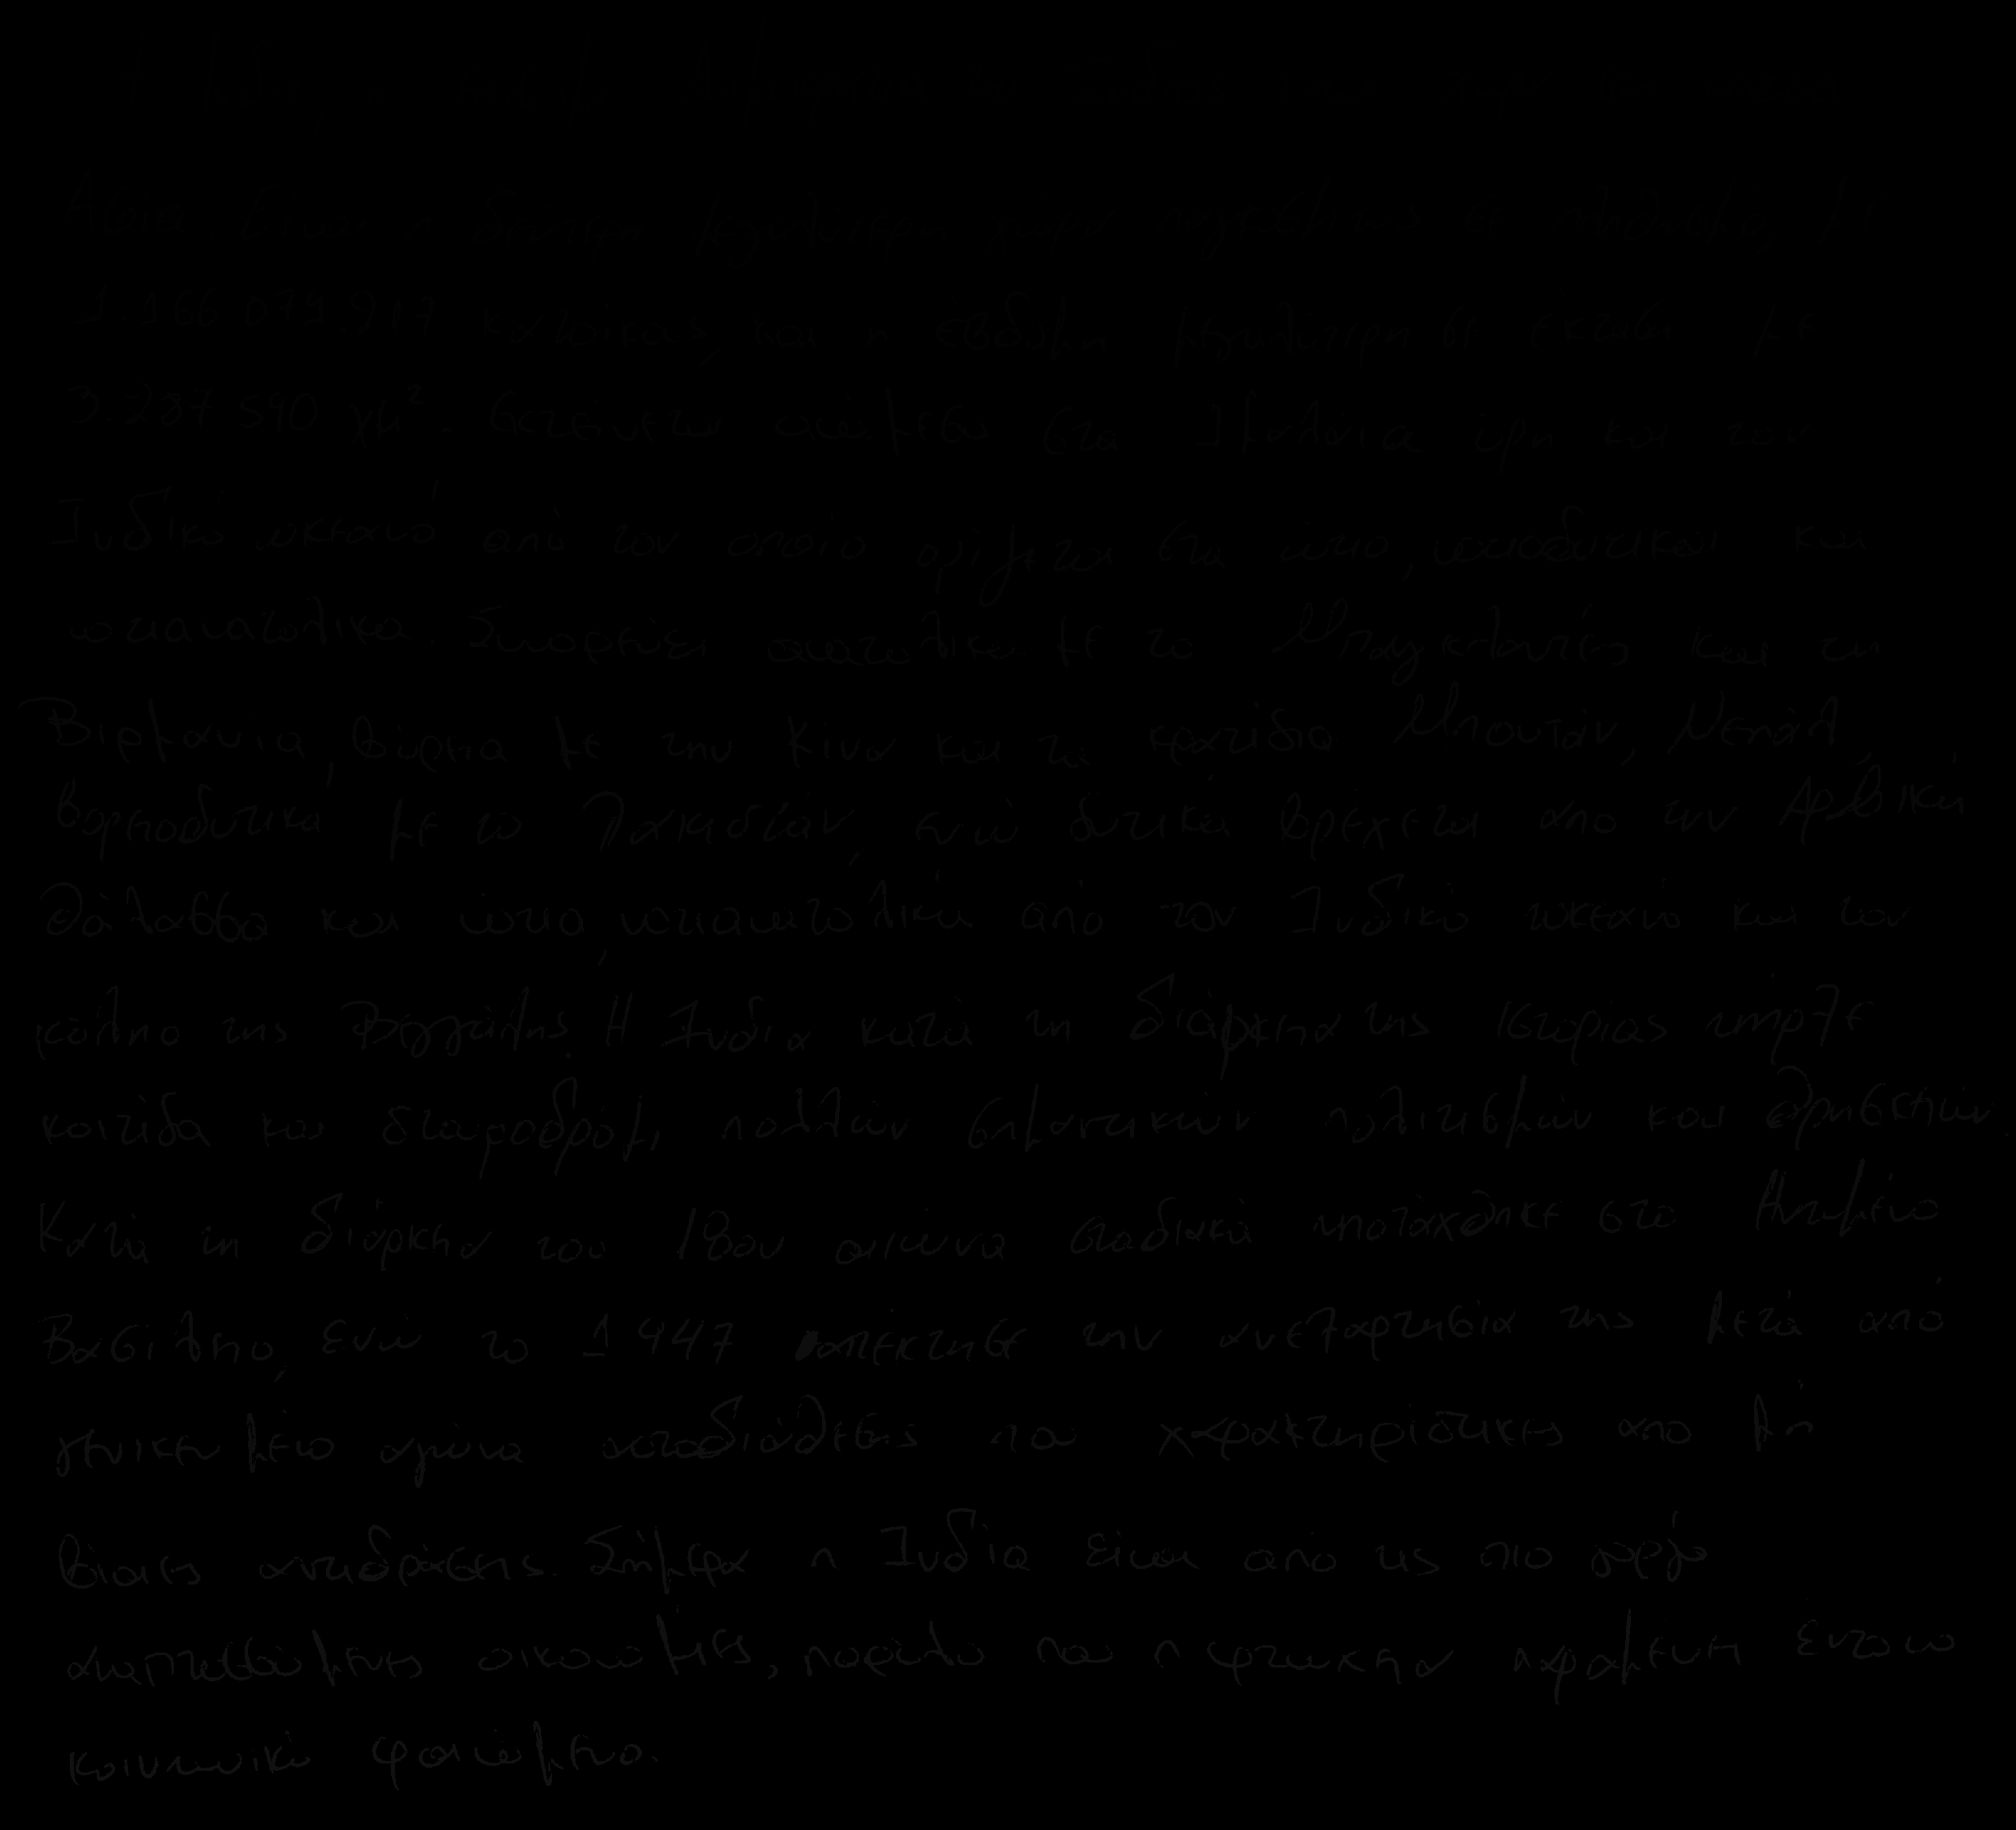 Ασία Είναι η δεύτερη μεγαλύτερη χώρα παγκόσμιως σε πληθυσμό, με
1.166.079.217 κατοίκους, και η έβδομη μεγαλύτερη σε έκταση με
3.287.590 χμ². Εκτείνεται ανάμεσα στα Ιμαλάια όρη και τον
Ινδικό ωκεανό από τον οποίο ορίζεται στα νότιο, νοτιοδυτικαι και
νοτιανατολικα. Συνορεύει ανατολικα με το Μπαγκλαντές και τη
Βιρμανια, βόρεια με την Κίνα και τα κρατίδια Μπουτάν, Νεπάλ,
βορειοδυτικά με το Πακιστάν, ενώ δυτικά βρέχεται απο την Αραβική
θάλασσα και νότια, νοτιανατολικά από τον Ινδικό ωκεανο και τον
κόλπο της Βεγγάλης. Η Ινδια κατά τη διάρκεια της ιστορίας υπήρξε
κοιτίδα και σταυροδρόμι πολλών σημαντικών πολιτισμών και θρησκειών.
Κατά τη διάρκεια του 18ου αιώνα σταδιακά υποτάχθηκε στο Ηνωμένο
Βασίλειο, ενώ το 1947 απέκτησε την ανεξαρτησία της μετά από
γενικευμένο αγώνα αυτοδιάθεσης που χαρακτηρίστικες απο μή
βίαιες αντιδράσεις. Σήμερα η Ινδία είναι απο τις πιο γοργά
αναπτυσσόμενες οικονομίες, παρόλο που η φτώχεια παραμενει έντονο
κοινωνικό φαινόμενο.